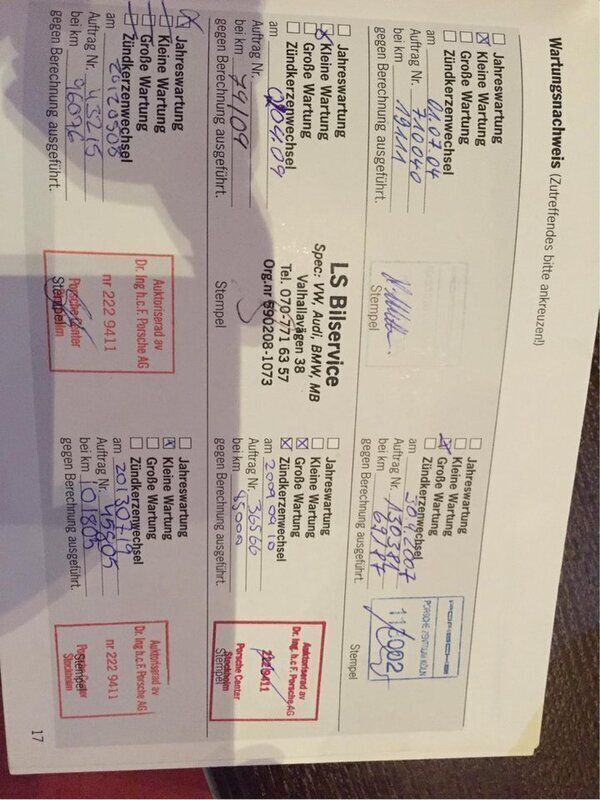 Wartungsnachweis (Zutreffendes bitte ankreuzen!)
Jahreswartung
Kleine Wartung
Große Wartung
Zündkerzenwechsel
am 01.07.04
Auftrag Nr. 710040
bei km 19111
gegen Berechnung ausgeführt.
Stempel
Jahreswartung
Kleine Wartung
Große Wartung
Zündkerzenwechsel
am
Auftrag Nr. 130387
bei km
gegen Berechnung ausgeführt.
PORSCHE
PORSCHE ZENTRUM KÖLN
Stempel
Jahreswartung
Kleine Wartung
Große Wartung
Zündkerzenwechsel
am
Auftrag Nr.
bei km 79109
gegen Berechnung ausgeführt.
LS Bilservice
Spec: VW, Audi, BMW, MB
Valhallavägen 38
Tel. 070-771 63 57
Org.nr 590208-1073
Stempel
Jahreswartung
Kleine Wartung
Große Wartung
Zündkerzenwechsel
am 2009 09 10
Auftrag Nr. 36566
bei km 85000
gegen Berechnung ausgeführt.
Auktoriserad av
Dr. Ing h.c.F. Porsche AG
222 9411
Porsche Center
Stockholm
Stempel
Jahreswartung
Kleine Wartung
Große Wartung
Zündkerzenwechsel
am 20120508
Auftrag Nr. 43215
bei km 96096
gegen Berechnung ausgeführt.
Auktoriserad av
Dr. Ing h.c.F. Porsche AG
nr 222 9411
Porsche Center
Stempel
Jahreswartung
Kleine Wartung
Große Wartung
Zündkerzenwechsel
am 20130719
Auftrag Nr. 45505
bei km 101805
gegen Berechnung ausgeführt.
Auktoriserad av
Dr. Ing h.c.F. Porsche AG
nr 222 9411
Porsche Center
Stockholm
Stempel
17